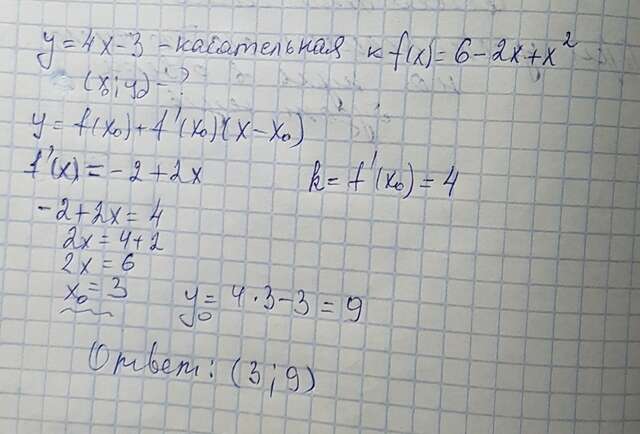 y = 4x - 3 - касательная к f(x) = 6 - 2x + x²
(x; y) - ?
y = f(x₀) + f'(x₀)(x - x₀)
f'(x) = -2 + 2x k = f'(x₀) = 4
-2 + 2x = 4
2x = 4 + 2
2x = 6
x₀ = 3 y₀ = 4 · 3 - 3 = 9
Ответ: (3; 9)